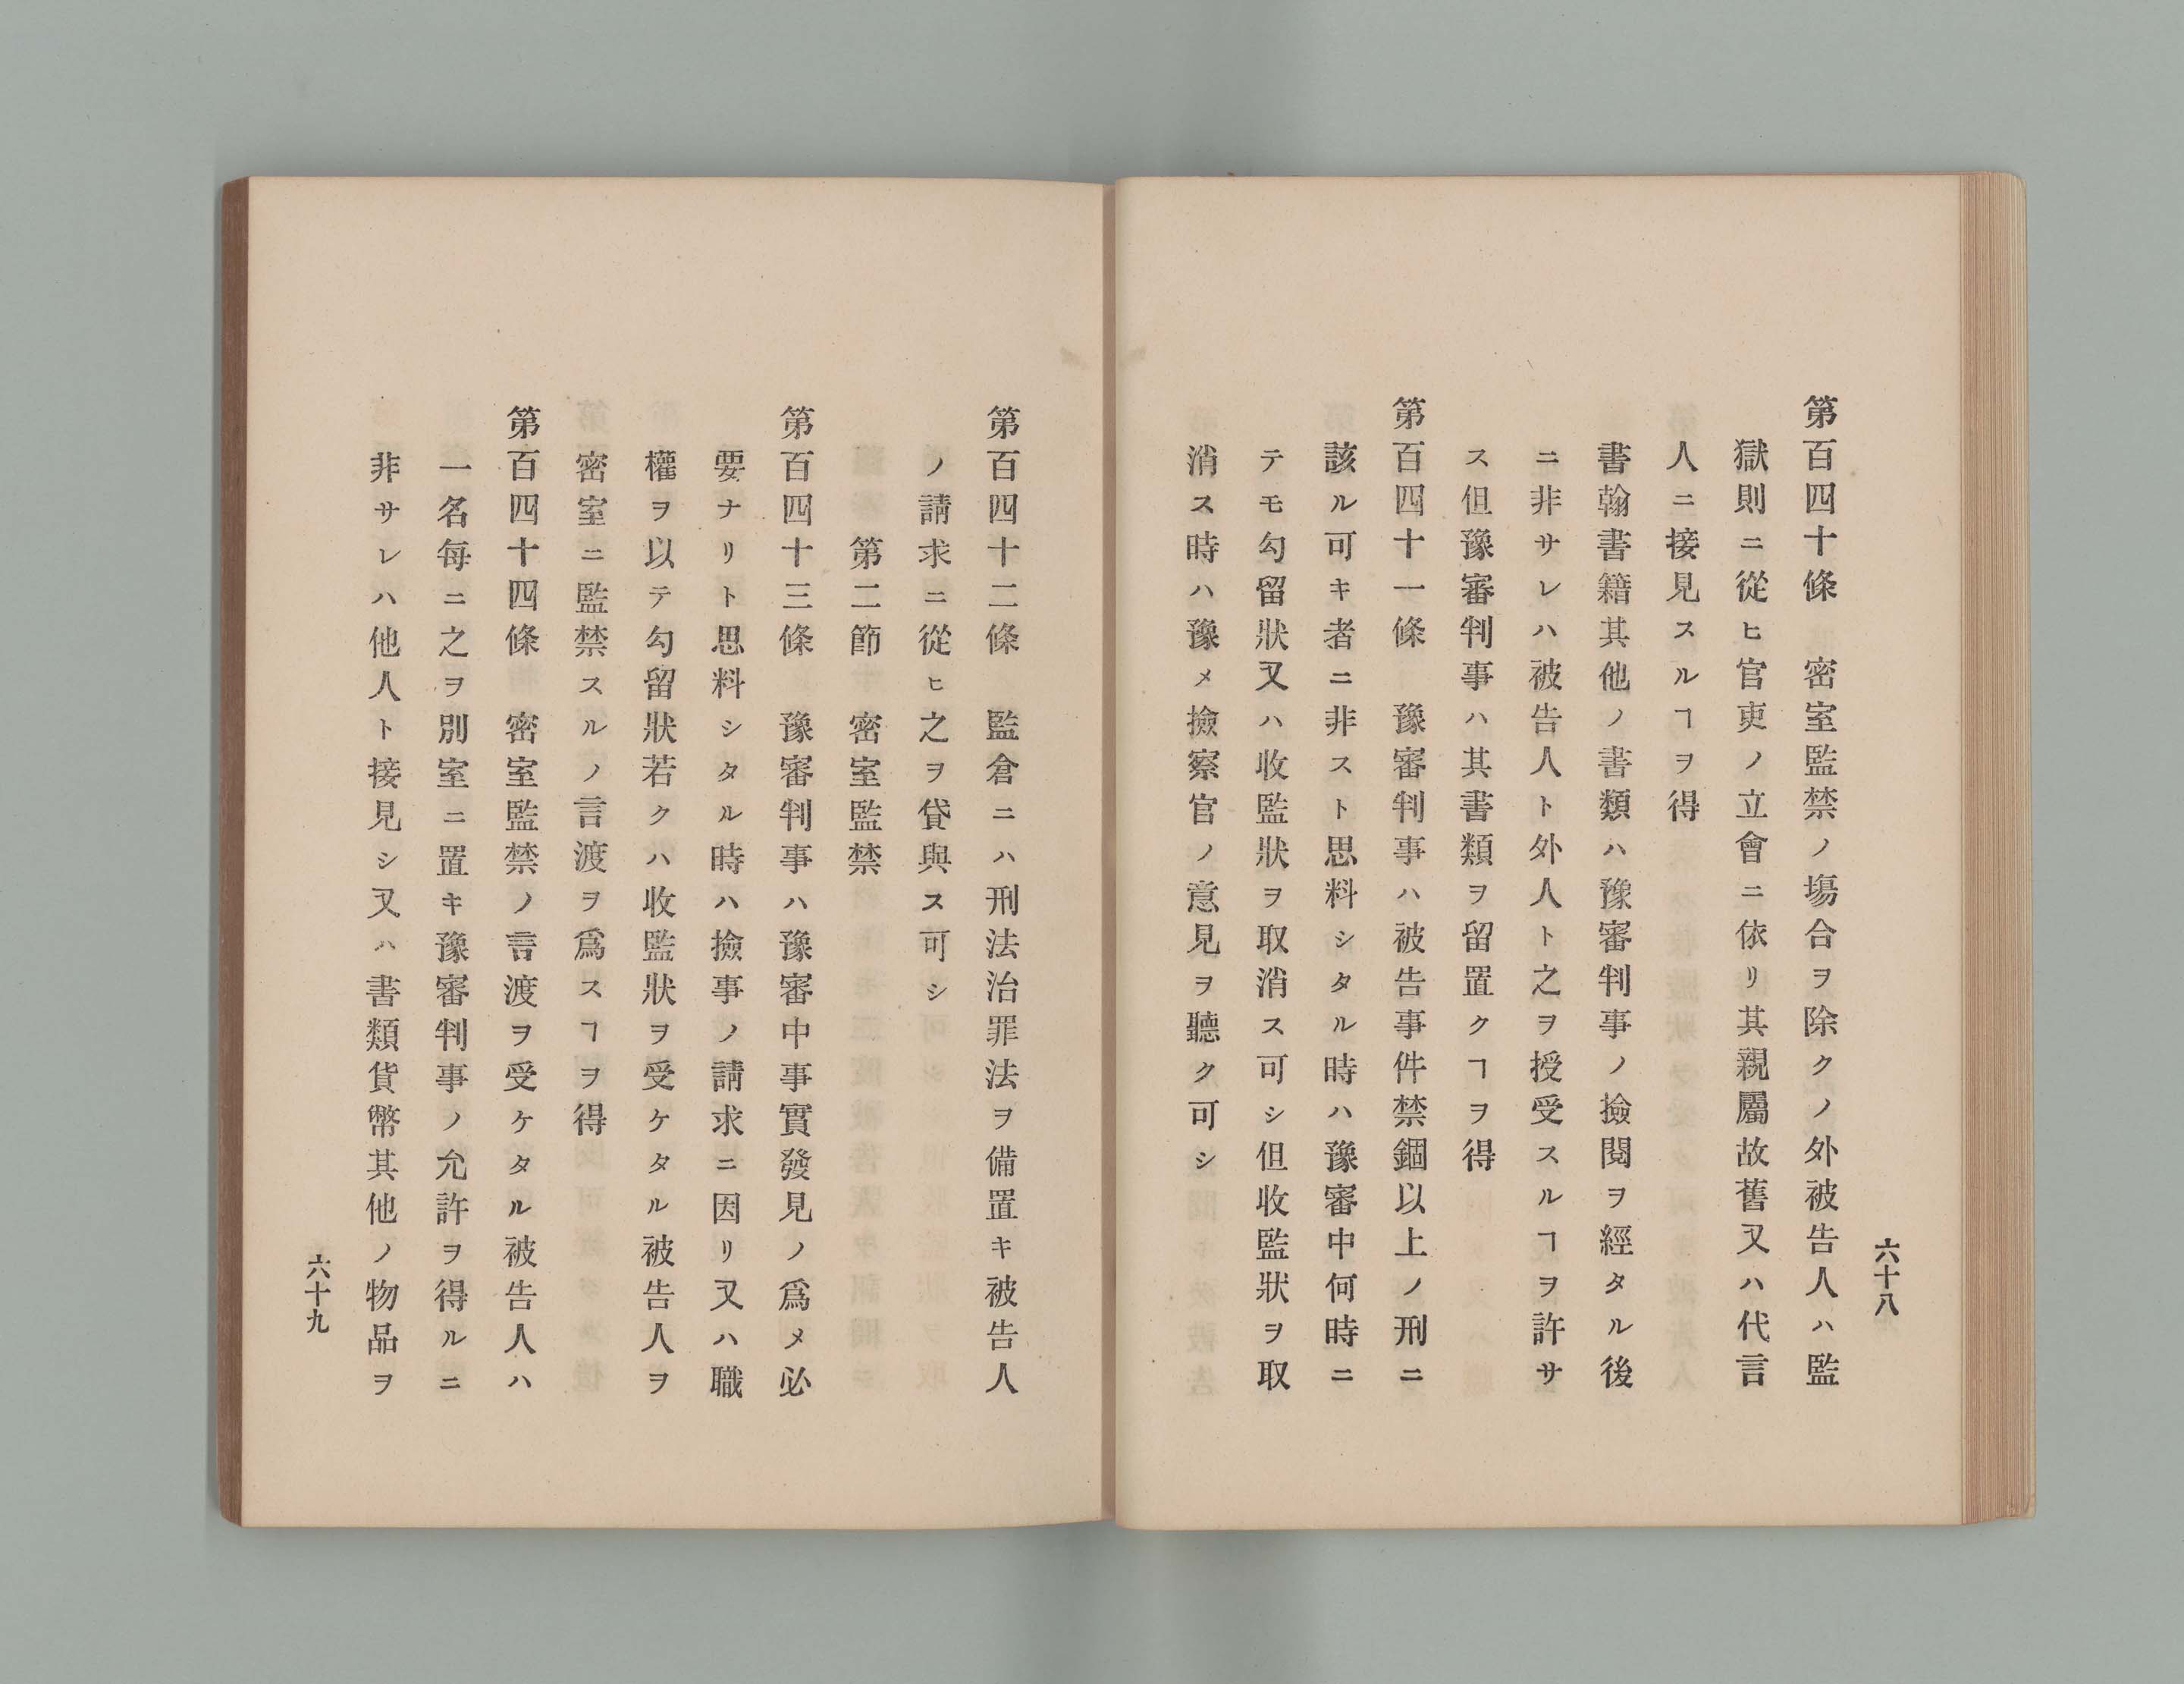 六十八
第百四十條　密室監禁ノ塲合ヲ除クノ外被告人ハ監
獄則ニ從ヒ官吏ノ立會ニ依リ其親屬故舊又ハ代言
人ニ接見スルヿヲ得
書翰書籍其他ノ書類ハ豫審判事ノ撿閱ヲ經タル後
ニ非サレハ被告人ト外人ト之ヲ授受スルヿヲ許サ
ス但豫審判事ハ其書類ヲ留置クヿヲ得
第百四十一條　豫審判事ハ被告事件禁錮以上ノ刑ニ
該ル可キ者ニ非スト思料シタル時ハ豫審中何時ニ
テモ勾留狀又ハ收監狀ヲ取消ス可シ但收監狀ヲ取
消ス時ハ豫メ撿察官ノ意見ヲ聽ク可シ
第百四十二條　監倉ニハ刑法治罪法ヲ備置キ被告人
ノ請求ニ從ヒ之ヲ貸與ス可シ
第二節　密室監禁
第百四十三條　豫審判事ハ豫審中事實發見ノ爲メ必
要ナリト思料シタル時ハ撿事ノ請求ニ因リ又ハ職
權ヲ以テ勾留狀若クハ收監狀ヲ受ケタル被告人ヲ
密室ニ監禁スルノ言渡ヲ爲スヿヲ得
第百四十四條　密室監禁ノ言渡ヲ受ケタル被告人ハ
一名每ニ之ヲ別室ニ置キ豫審判事ノ允許ヲ得ルニ
非サレハ他人ト接見シ又ハ書類貨幣其他ノ物品ヲ
六十九